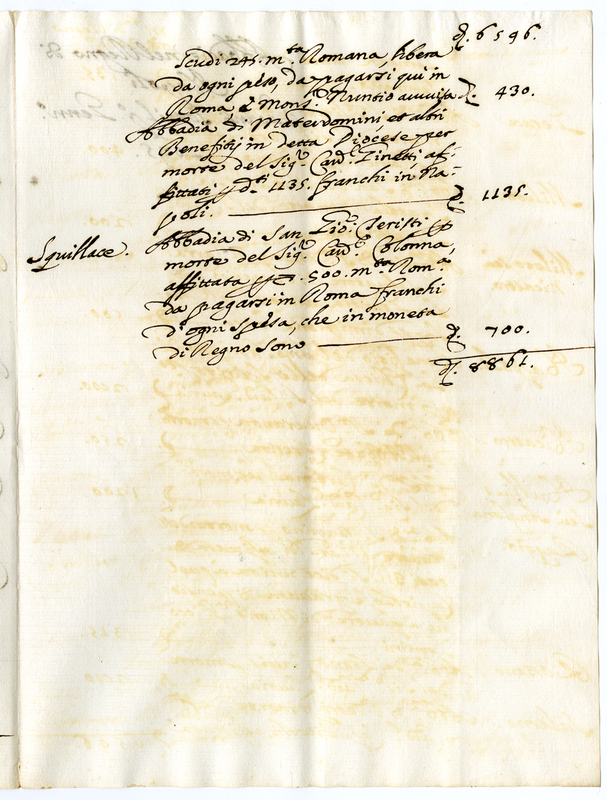 d. 6596.
scudi 245. m.ta Romana, libera
da ogni peso, da pagarsi qui in
Roma, è Mons.r Nuntio avvisa d. 430.
Abbadia di Materdomini, et altri
Benefitij in detta Diocese per
morte del Sig.r Card. Ginetti, af-
fittati p d.ti 1135. franchi in Na-
poli. d. 1135.
Squillace. Abbadia di San Gio: Teristi p
morte del Sig.r Card. Colonna,
affittata 500. m.ta Rom.a
da pagarsi in Roma franchi
d'ogni spesa, che in moneta
di Regno sono d. 700.
d. 8861.